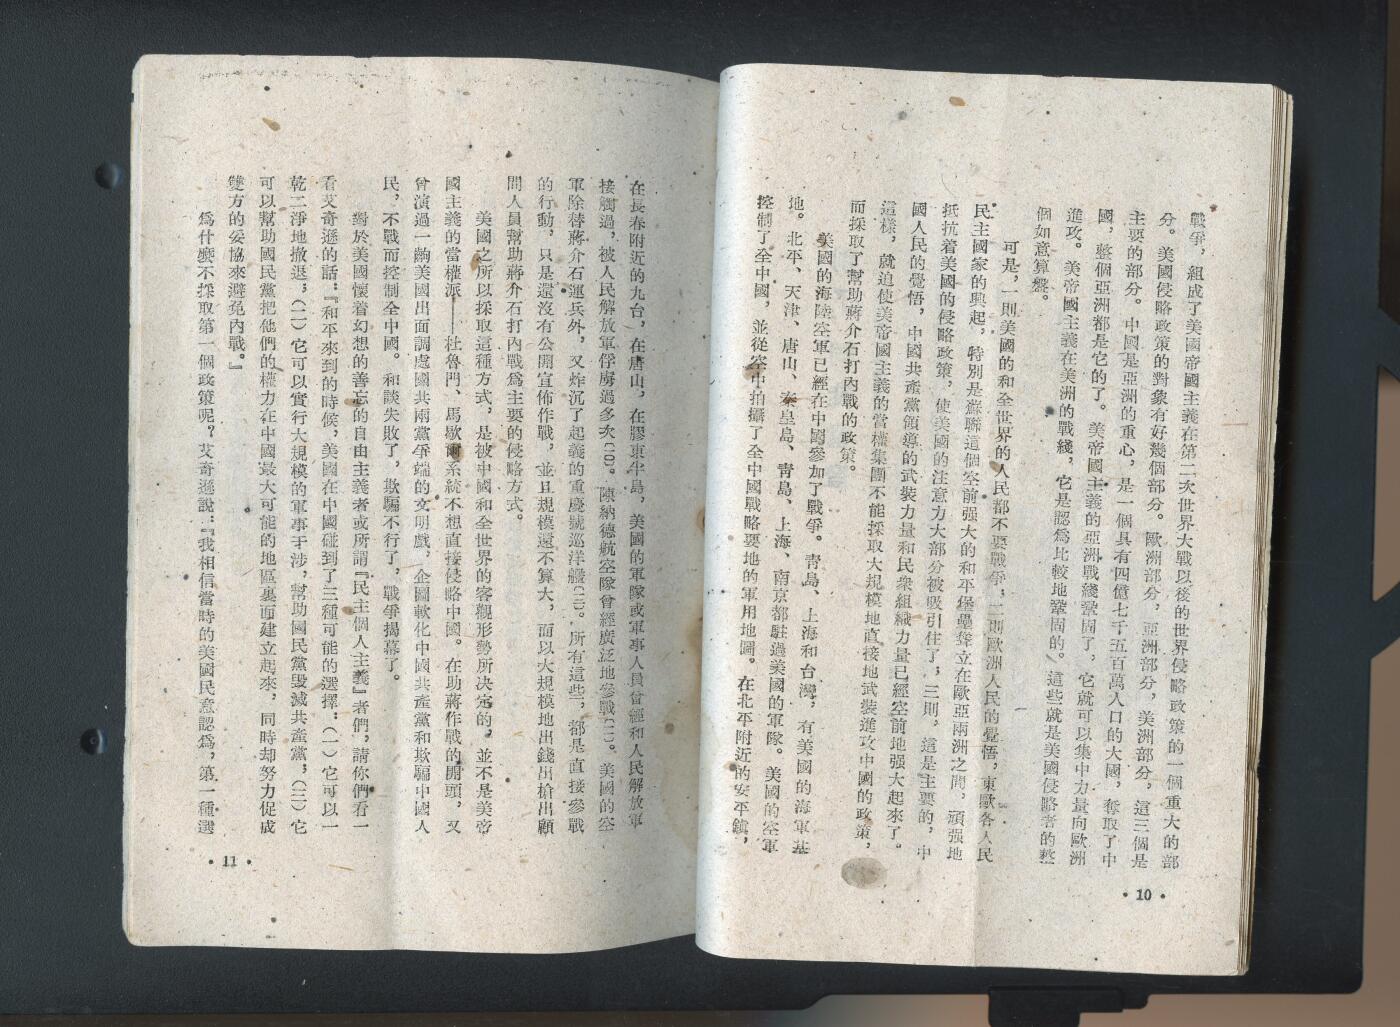 戰爭，組成了美國帝國主義在第二次世界大戰以後的世界侵略政策的一個重大的部
分。美國侵略政策的對象有好幾個部分。歐洲部分，亞洲部分，美洲部分，這三個是
主要的部分。中國是亞洲的重心，是一個具有四億七千五百萬人口的大國，奪取了中
國，整個亞洲都是它的了。美帝國主義的亞洲戰綫鞏固了，它就可以集中力量向歐洲
進攻。美帝國主義在美洲的戰綫，它是認爲比較地鞏固的。這些就是美國侵略者的整
個如意算盤。
可是，一則美國的和全世界的人民都不要戰爭；二則歐洲人民的覺悟，東歐各人民
民主國家的興起，特別是蘇聯這個空前强大的和平堡壘聳立在歐亞兩洲之間，頑强地
抵抗着美國的侵略政策，使美國的注意力大部分被吸引住了；三則，這是主要的，中
國人民的覺悟，中國共產黨領導的武裝力量和民衆組織力量已經空前地强大起來了。
這樣，就迫使美帝國主義的當權集團不能採取大規模地直接地武裝進攻中國的政策，
而採取了幫助蔣介石打內戰的政策。
美國的海陸空軍已經在中國參加了戰爭。靑島、上海和台灣，有美國的海軍基
地。北平、天津、唐山、秦皇島、靑島、上海、南京都駐過美國的軍隊。美國的空軍
控制了全中國，並從空中拍攝了全中國戰略要地的軍用地圖。在北平附近的安平鎭，
• 10 •
在長春附近的九台，在唐山，在膠東半島，美國的軍隊或軍事人員曾經和人民解放軍
接觸過，被人民解放軍俘虜過多次〔一〇〕。陳納德航空隊曾經廣泛地參戰〔一一〕。美國的空
軍除替蔣介石運兵外，又炸沉了起義的重慶號巡洋艦〔一二〕。所有這些，都是直接參戰
的行動，只是還沒有公開宣佈作戰，並且規模還不算大，而以大規模地出錢出槍出顧
問人員幫助蔣介石打內戰爲主要的侵略方式。
美國之所以採取這種方式，是被中國和全世界的客觀形勢所決定的，並不是美帝
國主義的當權派——杜魯門、馬歇爾系統不想直接侵略中國。在助蔣作戰的開頭，又
曾演過一齣美國出面調處國共兩黨爭端的文明戲，企圖軟化中國共產黨和欺騙中國人
民，不戰而控制全中國。和談失敗了，欺騙不行了，戰爭揭幕了。
對於美國懷着幻想的善忘的自由主義者或所謂『民主個人主義』者們，請你們看一
看艾奇遜的話：『和平來到的時候，美國在中國碰到了三種可能的選擇：（一）它可以一
乾二淨地撤退；（二）它可以實行大規模的軍事干涉，幫助國民黨毀滅共產黨；（三）它
可以幫助國民黨把他們的權力在中國最大可能的地區裏面建立起來，同時却努力促成
雙方的妥協來避免內戰。』
爲什麼不採取第一個政策呢？艾奇遜說：『我相信當時的美國民意認爲，第一種選
• 11 •